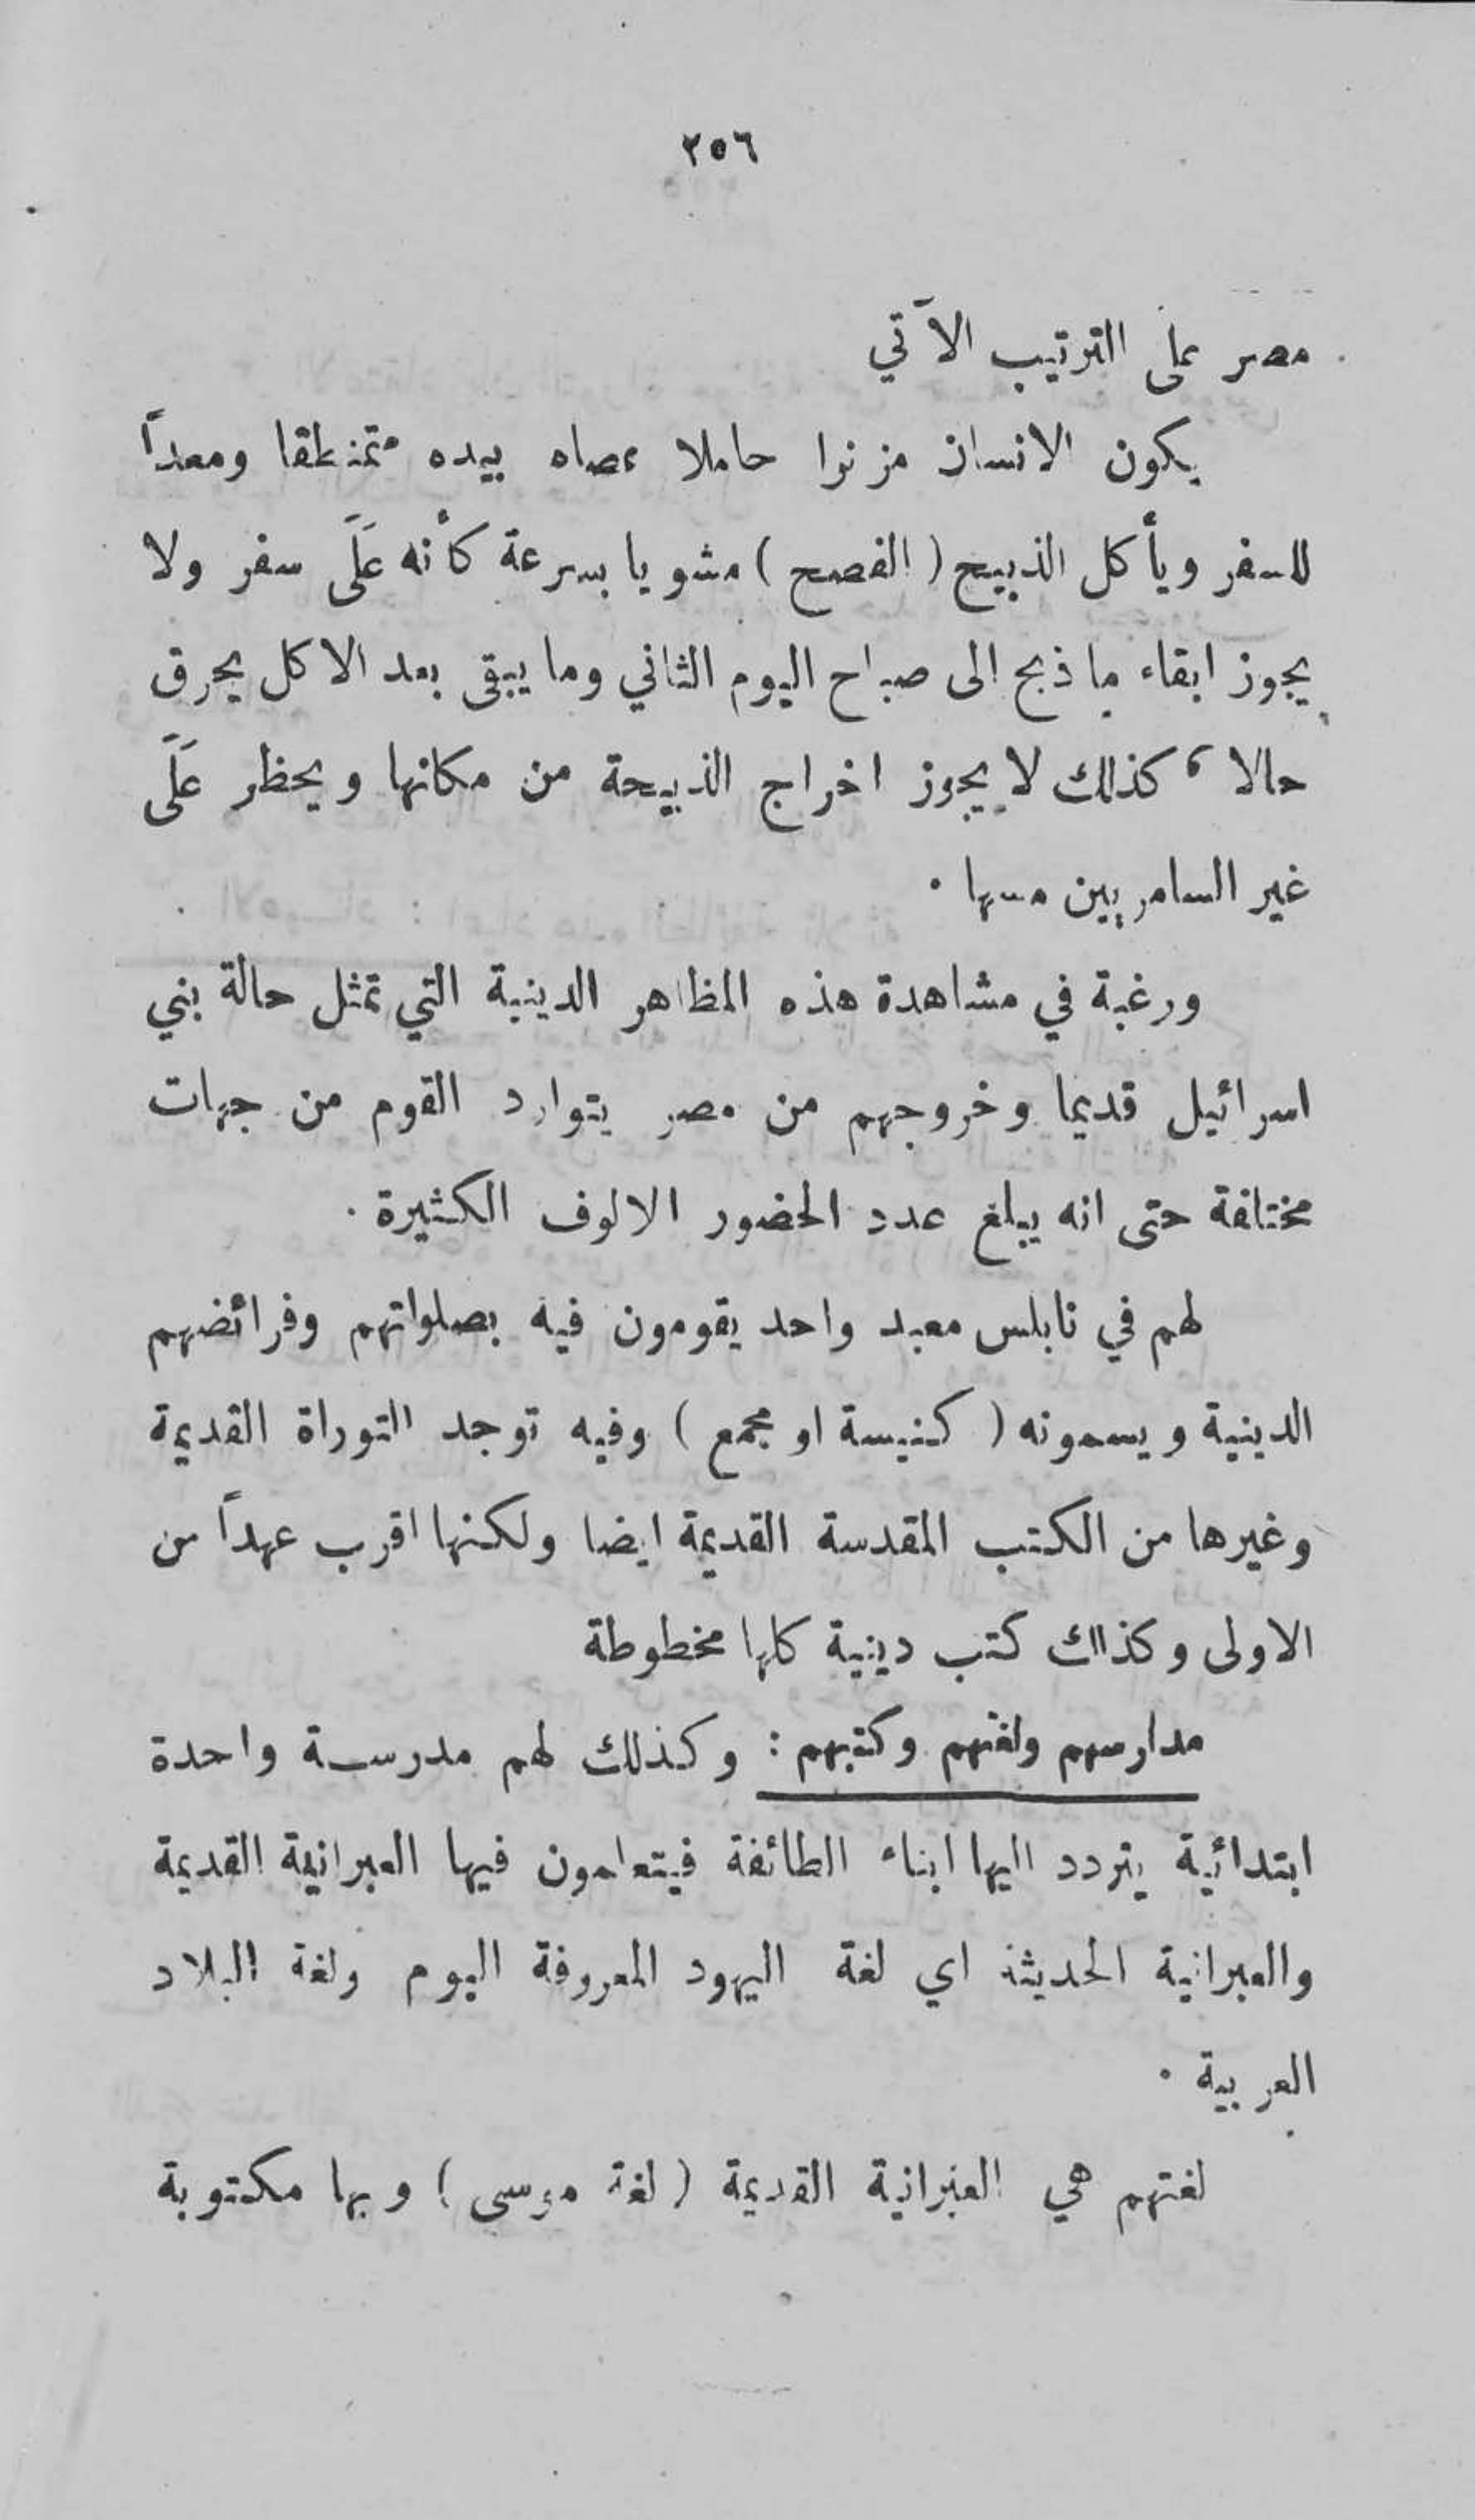 ٢٥٦
مصر على الترتيب الآتي
يكون الانسان مزنرا حاملا عصاه بيده متمنطقا ومعداً
للسفر ويأكل الذبيح ( الفصح ) مشويا بسرعة كأنه عَلَى سفر ولا
يجوز ابقاء ما ذبح الى صباح اليوم الثاني وما يبقى بعد الاكل يحرق
حالا ، كذلك لا يجوز اخراج الذبيحة من مكانها ويحظر عَلَى
غير السامريين مسها ٠
ورغبة في مشاهدة هذه المظاهر الدينية التي تمثل حالة بني
اسرائيل قديما وخروجهم من مصر يتوارد القوم من جهات
مختلفة حتى انه يبلغ عدد الحضور الالوف الكثيرة ٠
لهم في نابلس معبد واحد يقومون فيه بصلواتهم وفرائضهم
الدينية ويسمونه ( كنيسة او مجمع ) وفيه توجد التوراة القديمة
وغيرها من الكتب المقدسة القديمة ايضا ولكنها اقرب عهداً من
الاولى وكذلك كتب دينية كلها مخطوطة
مدارسهم ولغتهم وكتبهم : وكذلك لهم مدرسة واحدة
ابتدائية يتردد اليها ابناء الطائفة فيتعلمون فيها العبرانية القديمة
والعبرانية الحديثة اي لغة اليهود المعروفة اليوم ولغة البلاد
العربية ٠
لغتهم هي العبرانية القديمة ( لغة موسى ) وبها مكتوبة